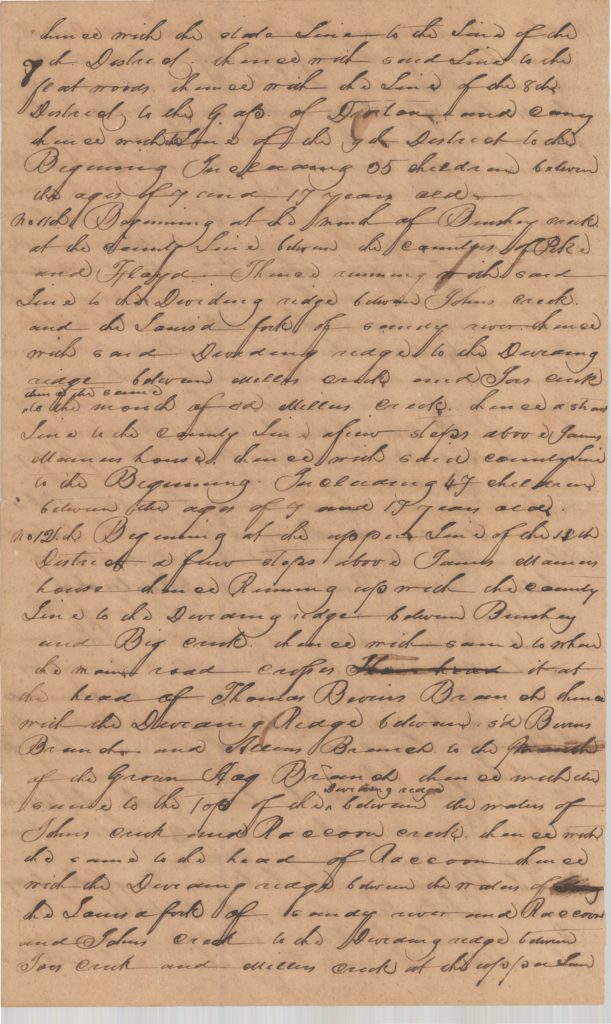 thence with the state Line to the Line of the
7th District. thence with said Line to the
flat woods thence with the Line of the 8th
District, to the Gap of and
thence with Line of the 9th District to the
Begining Including 35 children between
the ages of 7 and 17 years old
No 11th Beginning at the mouth of Brushey creek
at the county Line between the countys of Pike
and Floyd. Thence running with said
Line to the Dividing ridge between Johns creek.
and the Louisa fork of sandy river thence
with said Dividing ridge to the Dividing
ridge between Millers creek and Joes creek
thence the same
to the mouth of sd Millers Creek. thence a strait
Line to the county Line a few steps above James
house. thence with said county Line
to the Beginning. Including 47 children
between the ages of 7 and 17 years old.
No 12th Beginning at the upper Line of the 11th
District a few steps above James
house thence Running up with the county
Line to the Dividing ridge between Brushey
and Big creek thence with same to where
the main road crosses it at
the head of Thomas Bevins Branch thence
with the Dividing Ridge between sd Bevins
Branch and Branch to the
of the Groun Hog Branch thence with the
Dividing ridge
same to the Top of the between the waters of
Johns creek and Raccoon creek. thence with
the same to the head of Raccoon thence
with the Dividing ridge between the waters of
the Louisa fork of sandy river and Raccoon
and Johns creek to the Dividing ridge between
Joes creek and Millers creek at the upper Line